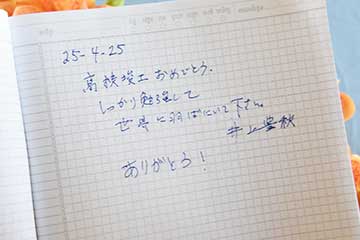 25-4-25
高校竣工おめでとう。
しっかり勉強して
世界に羽ばたいて下さい
井上豊秋
ありがとう！